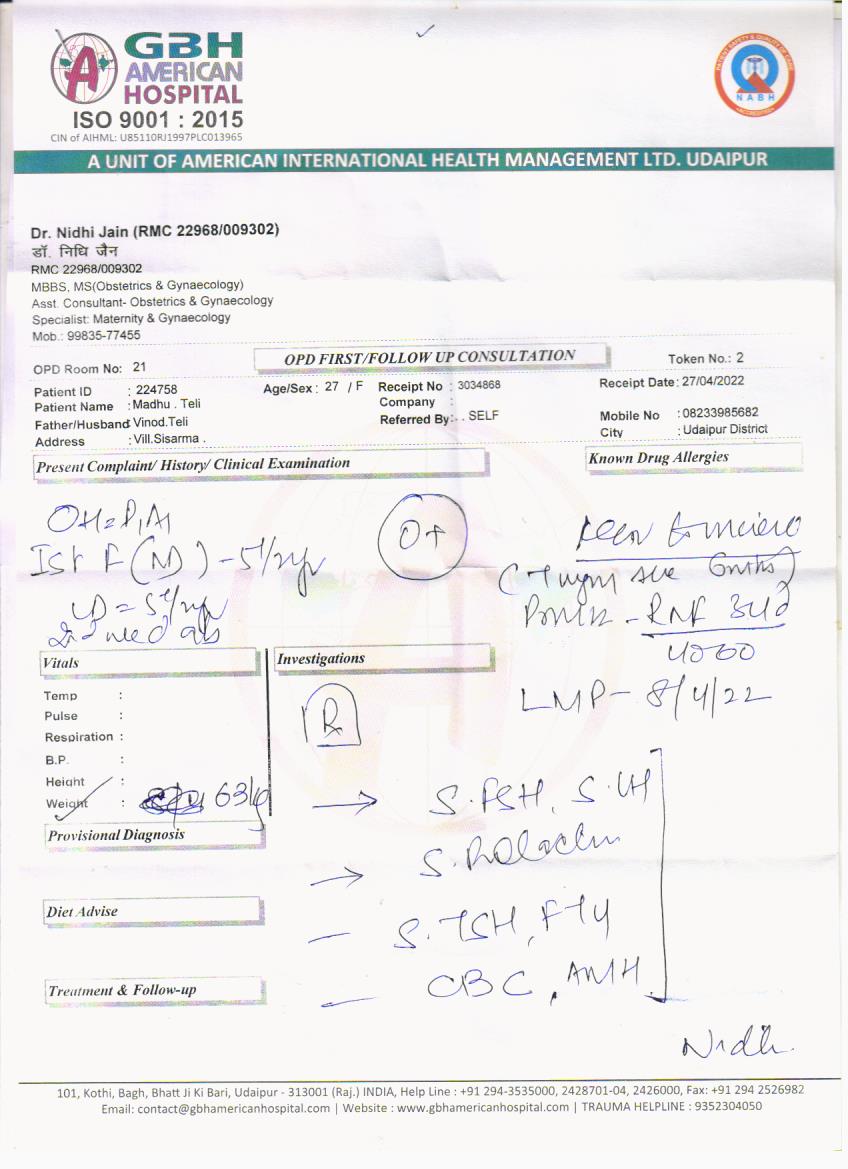 GBH
AMERICAN
HOSPITAL
ISO 9001 : 2015
CIN of AIHML: U85110RJ1997PLC013965
PATIENT SAFETY & QUALITY OF CARE
NABH
A UNIT OF AMERICAN INTERNATIONAL HEALTH MANAGEMENT LTD. UDAIPUR
Dr. Nidhi Jain (RMC 22968/009302)
डॉ. निधि जैन
RMC 22968/009302
MBBS, MS(Obstetrics & Gynaecology)
Asst. Consultant- Obstetrics & Gynaecology
Specialist: Maternity & Gynaecology
Mob.: 99835-77455
OPD Room No: 21 OPD FIRST/FOLLOW UP CONSULTATION Token No.: 2
Patient ID : 224758 Age/Sex : 27 / F Receipt No : 3034868 Receipt Date: 27/04/2022
Patient Name : Madhu . Teli Company :
Father/Husband Vinod.Teli Referred By: . . SELF Mobile No : 08233985682
Address : Vill.Sisarma . City : Udaipur District
Present Complaint/ History/ Clinical Examination Known Drug Allergies
O+
Vitals Investigations
Temp :
Pulse :
Respiration :
B.P. :
Height :
Weight : 63kg
LMP- 8/4/22
S. FSH, S. LH
Provisional Diagnosis
S. Prolactin
Diet Advise
S. TSH, FT4
CBC, AMH
Treatment & Follow-up
Nidhi
101, Kothi, Bagh, Bhatt Ji Ki Bari, Udaipur - 313001 (Raj.) INDIA, Help Line : +91 294-3535000, 2428701-04, 2426000, Fax: +91 294 2526982
Email: contact@gbhamericanhospital.com | Website : www.gbhamericanhospital.com | TRAUMA HELPLINE : 9352304050